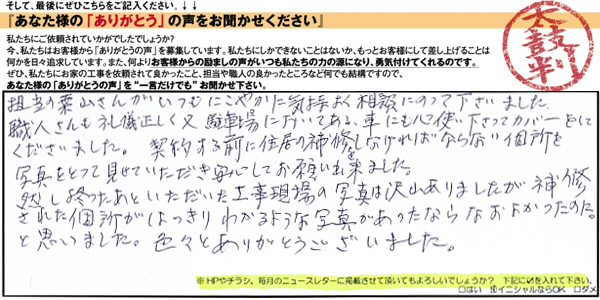 そして、最後にぜひこちらをご記入ください。↓↓
『あなた様の「ありがとう」の声をお聞かせください』
私たちにご依頼されていかがでしたでしょうか?
今、私たちはお客様から「ありがとうの声」を募集しています。私たちにしかできないことはないか、もっとお客様にして差し上げることは
何かを日々追求しています。また、何よりお客様からの励ましの声がいつも私たちの力の源になり、勇気付けてくれるのです。
ぜひ、私たちにお家の工事を依頼されて良かったこと、担当や職人の良かったところなど何でも結構ですので、
あなた様の「ありがとうの声」を“一言だけでも”お聞かせ下さい。
太鼓判
担当の葉山さんがいつもにこやかに気持よく相談にのって下さいました
職人さんも礼儀正しく又駐車場においてある、車にも心使い下さってカバーをして
くださいました。契約する前に住居の補修しなければならない個所を
写真をとって見せていただき安心してお願い出来ました。
然し終ったあといただいた工事現場の写真は沢山ありましたが補修
された個所がはっきりわかるような写真があったならなおよかったのに。
と思いました。色々とありがとうございました。
※HPやチラシ、毎月のニュースレターに掲載させて頂いてもよろしいでしょうか? 下記に☑を入れて下さい。
□はい ☑イニシャルならOK □ダメ